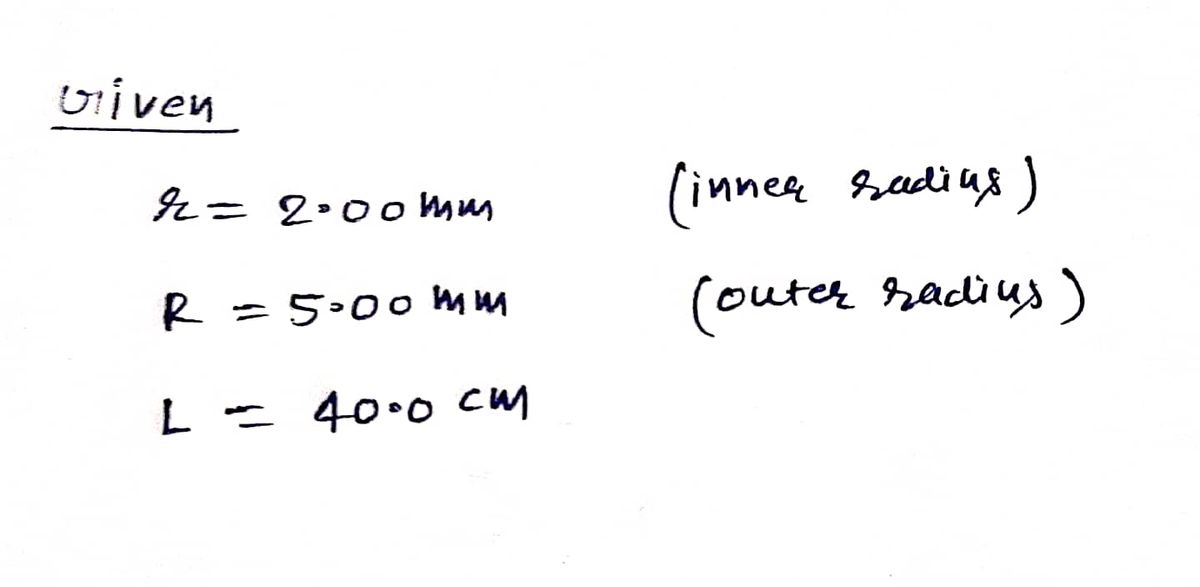 Given
r = 2.00 mm (inner radius)
R = 5.00 mm (outer radius)
L = 40.0 cm